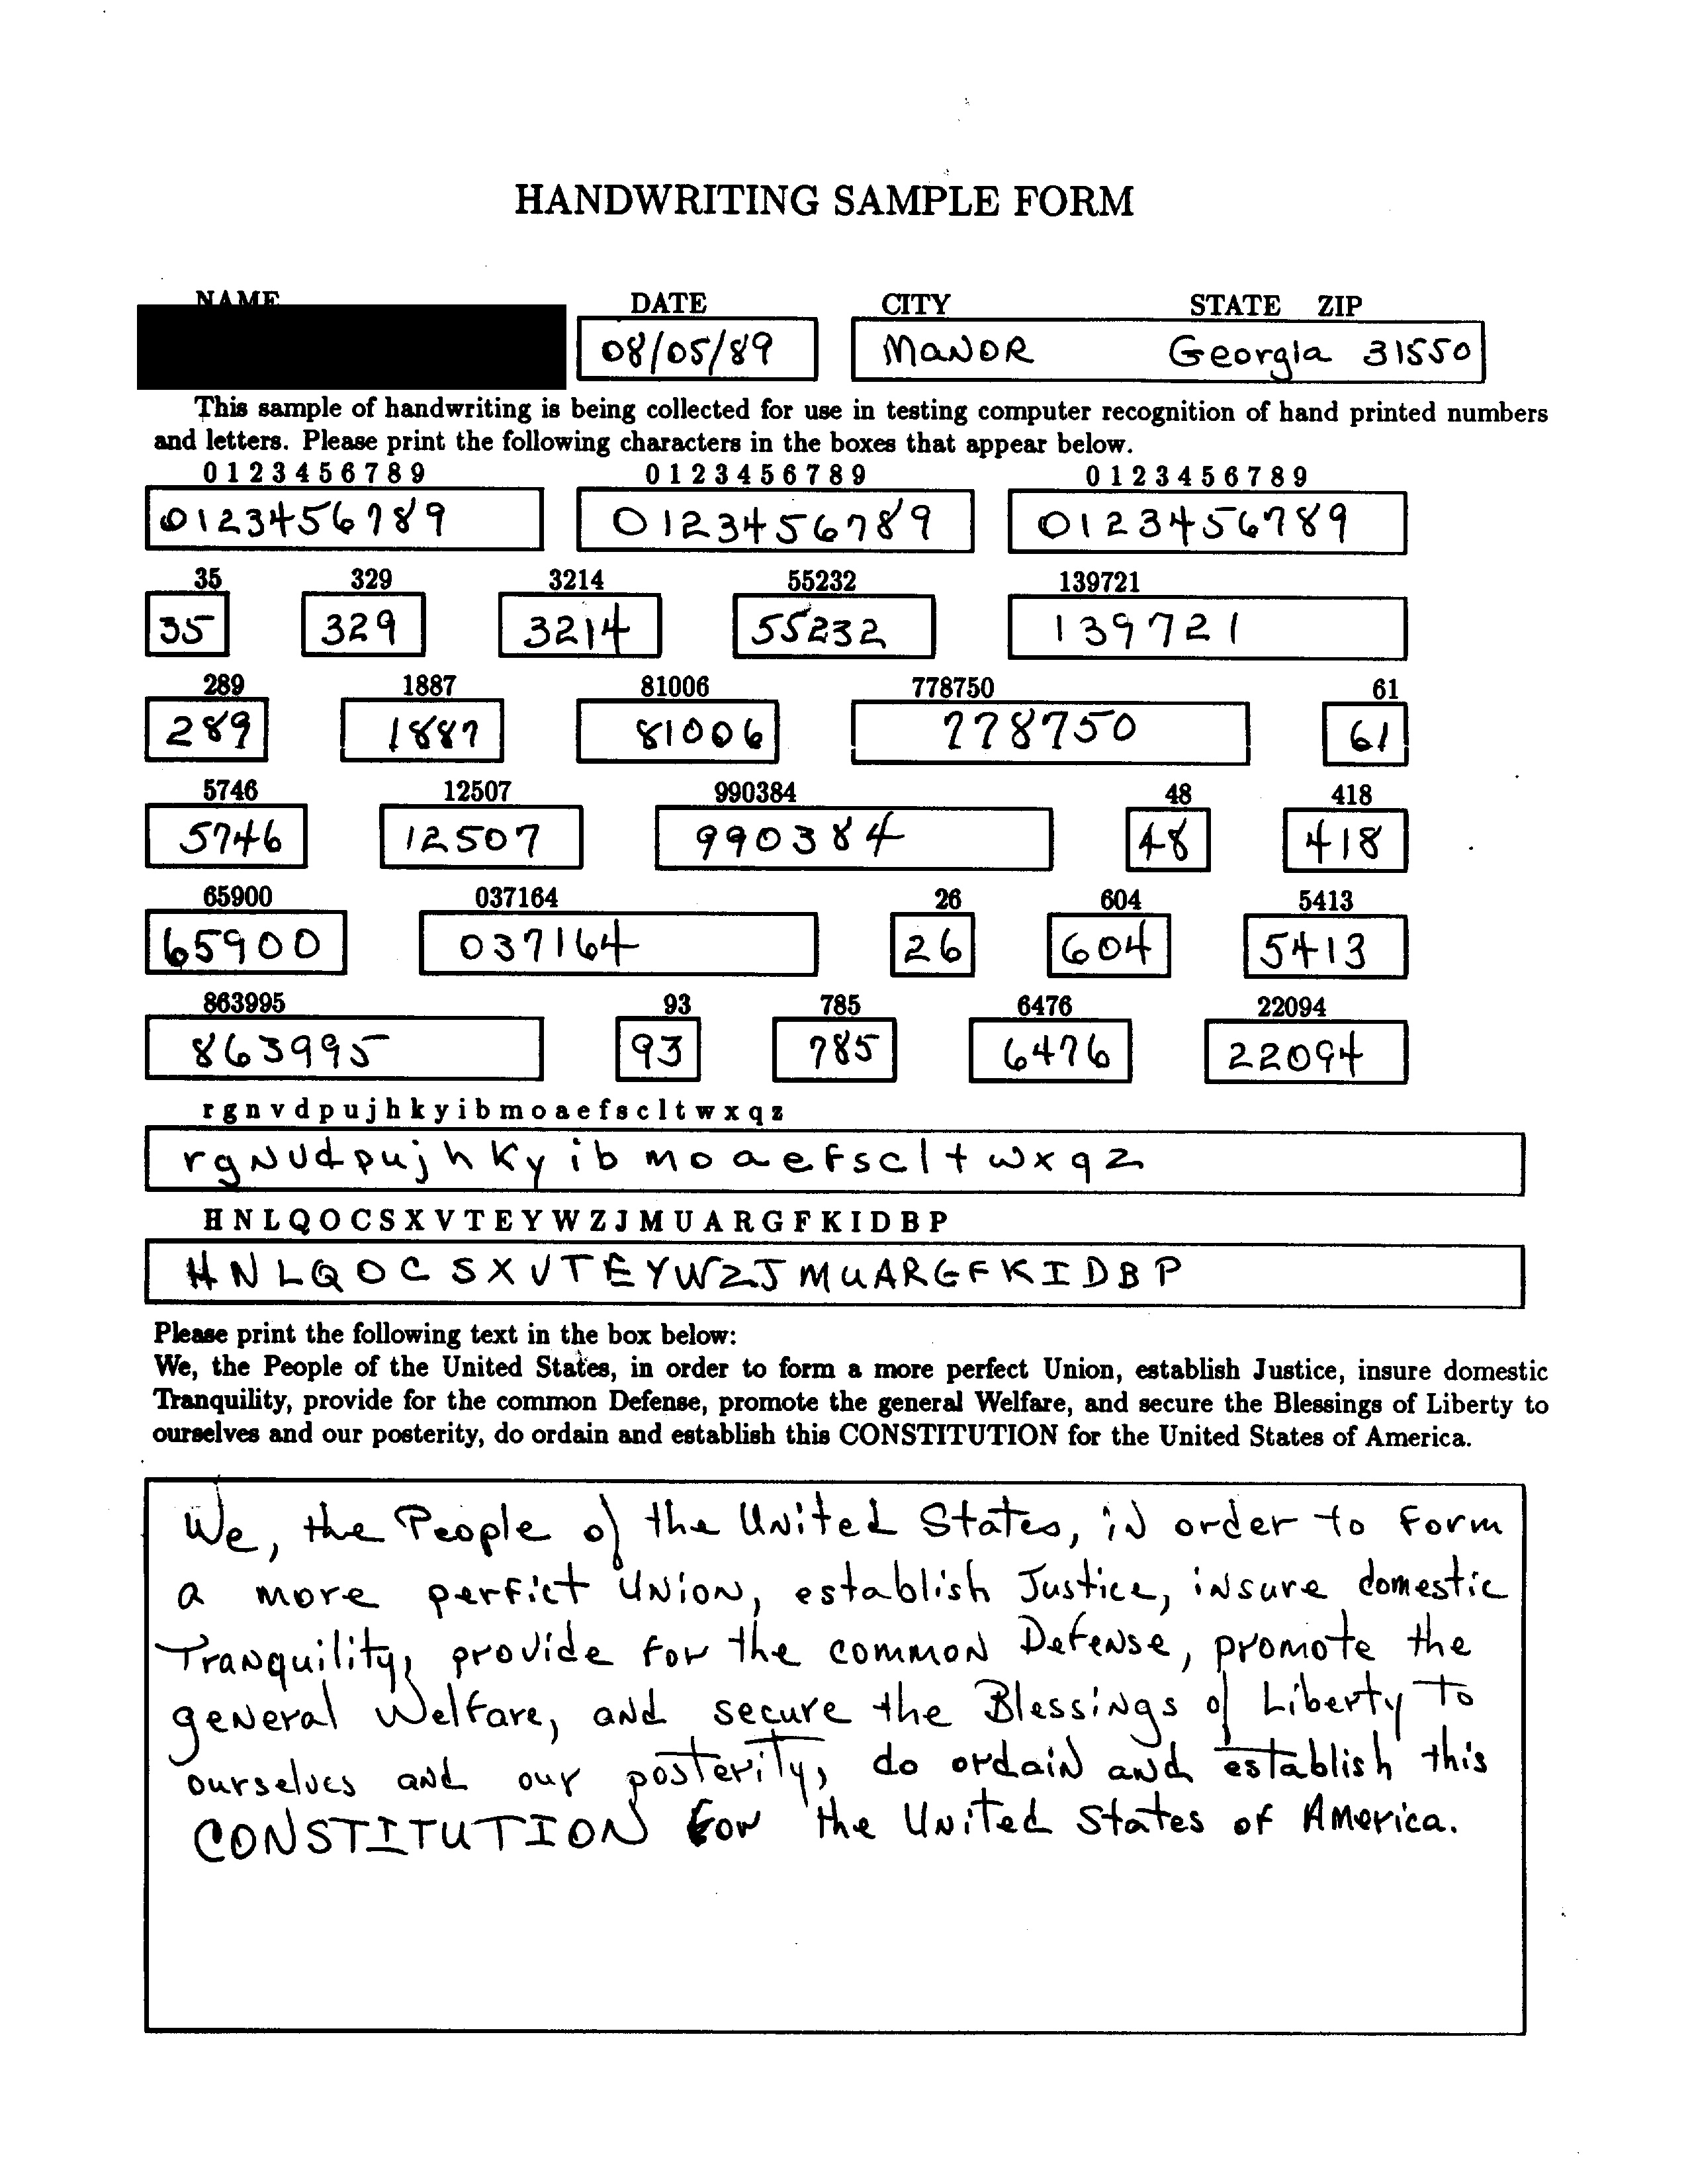 HANDWRITING SAMPLE FORM
NAME DATE CITY STATE ZIP
08/05/89 MaNOR Georgia 31550
This sample of handwriting is being collected for use in testing computer recognition of hand printed numbers
and letters. Please print the following characters in the boxes that appear below.
0 1 2 3 4 5 6 7 8 9 0 1 2 3 4 5 6 7 8 9 0 1 2 3 4 5 6 7 8 9
0123456789 0123456789 0123456789
35 329 3214 55232 139721
35 329 3214 55232 139721
289 1887 81006 778750 61
289 1887 81006 778750 61
5746 12507 990384 48 418
5746 12507 990384 48 418
65900 037164 26 604 5413
65900 037164 26 604 5413
863995 93 785 6476 22094
863995 93 785 6476 22094
r g n v d p u j h k y i b m o a e f s c l t w x q z
r g N v d p u j h K y i b m o a e f s c l t w x q z
H N L Q O C S X V T E Y W Z J M U A R G F K I D B P
H N L Q O C S X V T E Y W Z J M U A R G F K I D B P
Please print the following text in the box below:
We, the People of the United States, in order to form a more perfect Union, establish Justice, insure domestic
Tranquility, provide for the common Defense, promote the general Welfare, and secure the Blessings of Liberty to
ourselves and our posterity, do ordain and establish this CONSTITUTION for the United States of America.
We, the People of the UNited States, iN order to form
a more perfict UNioN, establish Justice, iNsure domestic
TraNquility, provide for the commoN DefeNse, promote the
geNeral Welfare, aNd secure the BlessiNgs of Liberty To
ourselves aNd our posterity, do ordaiN aNd establish this
CONSTITUTION for the UNited States of America.